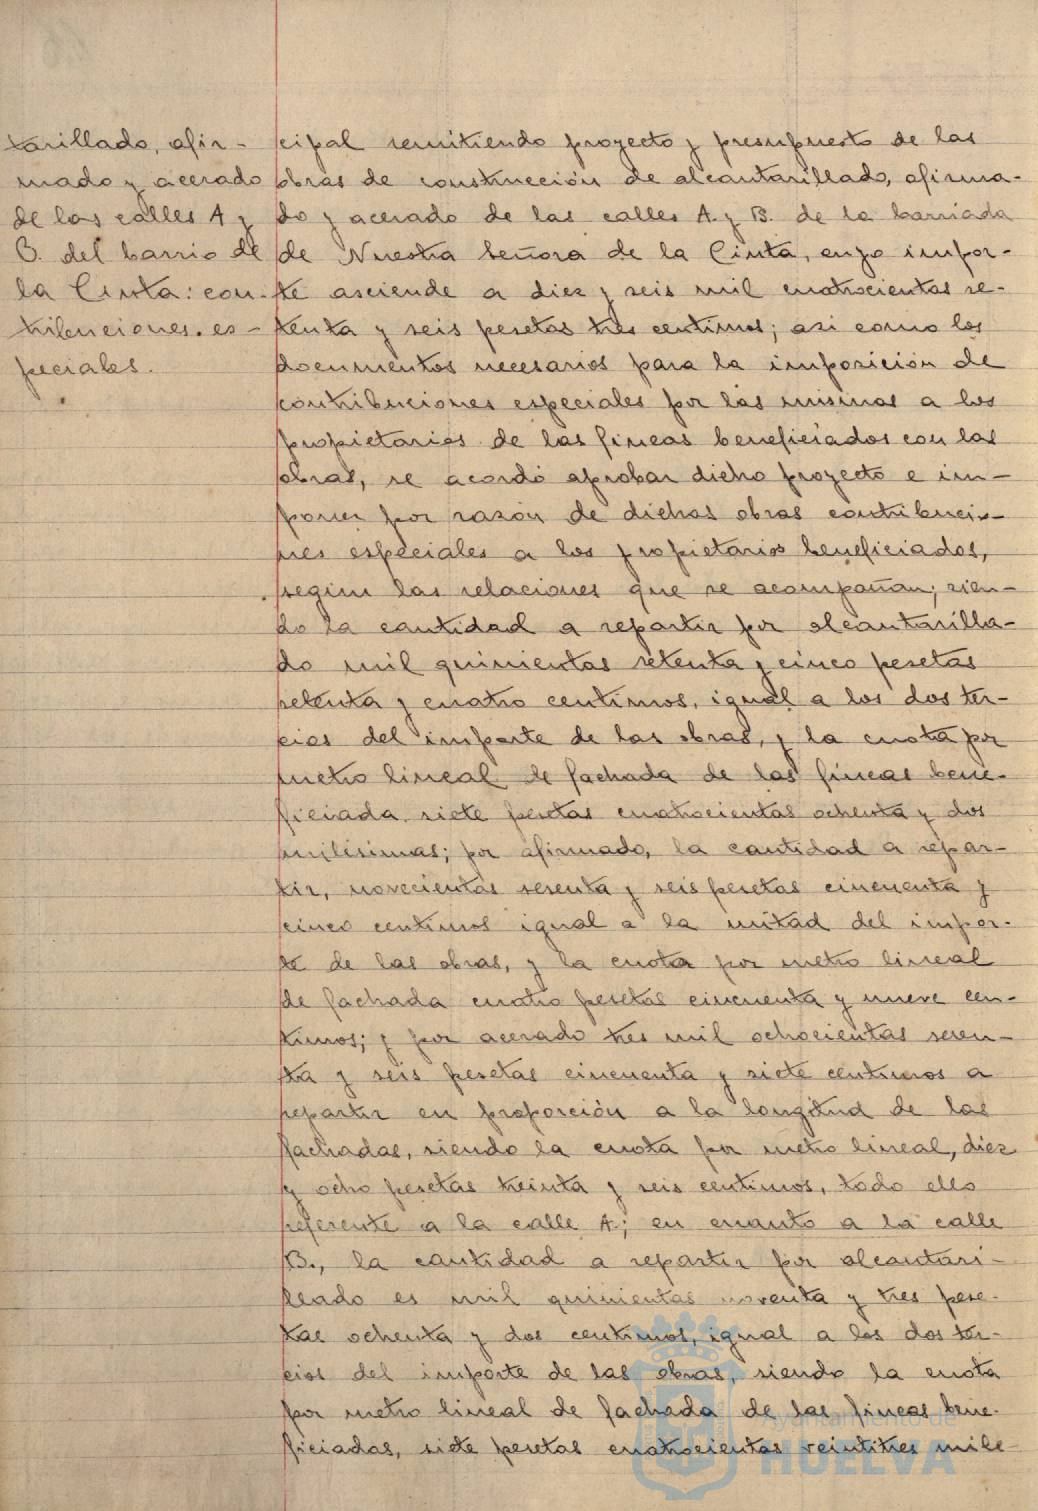 tarillado, afir-
mado y acerado
de las calles A y
B. del barrio de
la Cinta: con-
tribuciones. es-
peciales.
cipal remitiendo proyecto y presupuesto de las
obras de construcción de alcantarillado, afirma-
do y acerado de las calles A. y B. de la barriada
de Nuestra Señora de la Cinta, cuyo impor-
te asciende a diez y seis mil cuatrocientas se-
tenta y seis pesetas tres centimos; asi como los
documentos necesarios para la imposición de
contribuciones especiales por las mismas a los
propietarios de las fincas beneficiados con las
obras, se acordó aprobar dicho proyecto e im-
poner por razón de dichas obras contribucio-
nes especiales a los propietarios beneficiados,
segun las relaciones que se acompañan; sien-
do la cantidad a repartir por alcantarilla-
do mil quinientas setenta y cinco pesetas
setenta y cuatro centimos, igual a los dos ter-
cios del importe de las obras, y la cuota por
metro lineal de fachada de las fincas bene-
ficiada siete pesetas cuatrocientas ochenta y dos
milésimas; por afirmado, la cantidad a repar-
tir, novecientas sesenta y seis pesetas cincuenta y
cinco centimos igual a la mitad del impor-
te de las obras, y la cuota por metro lineal
de fachada cuatro pesetas cincuenta y nueve cen-
timos; y por acerado tres mil ochocientas seten-
ta y seis pesetas cincuenta y siete centimos a
repartir en proporción a la longitud de las
fachadas, siendo la cuota por metro lineal, diez
y ocho pesetas treinta y seis centimos, todo ello
referente a la calle A.; en cuanto a la calle
B., la cantidad a repartir por alcantari-
llado es mil quinientas noventa y tres pese-
tas ochenta y dos centimos, igual a los dos ter-
cios del importe de las obras, siendo la cuota
por metro lineal de fachada de las fincas bene-
ficiadas, siete pesetas cuatrocientas veintitres milé-
Ayuntamiento de
HUELVA